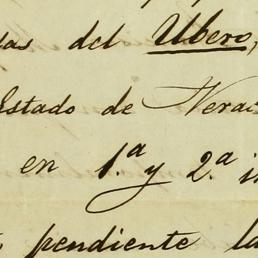 as del Ubero,
Estado de Verac
en 1.ª y 2.ª i
pendiente la